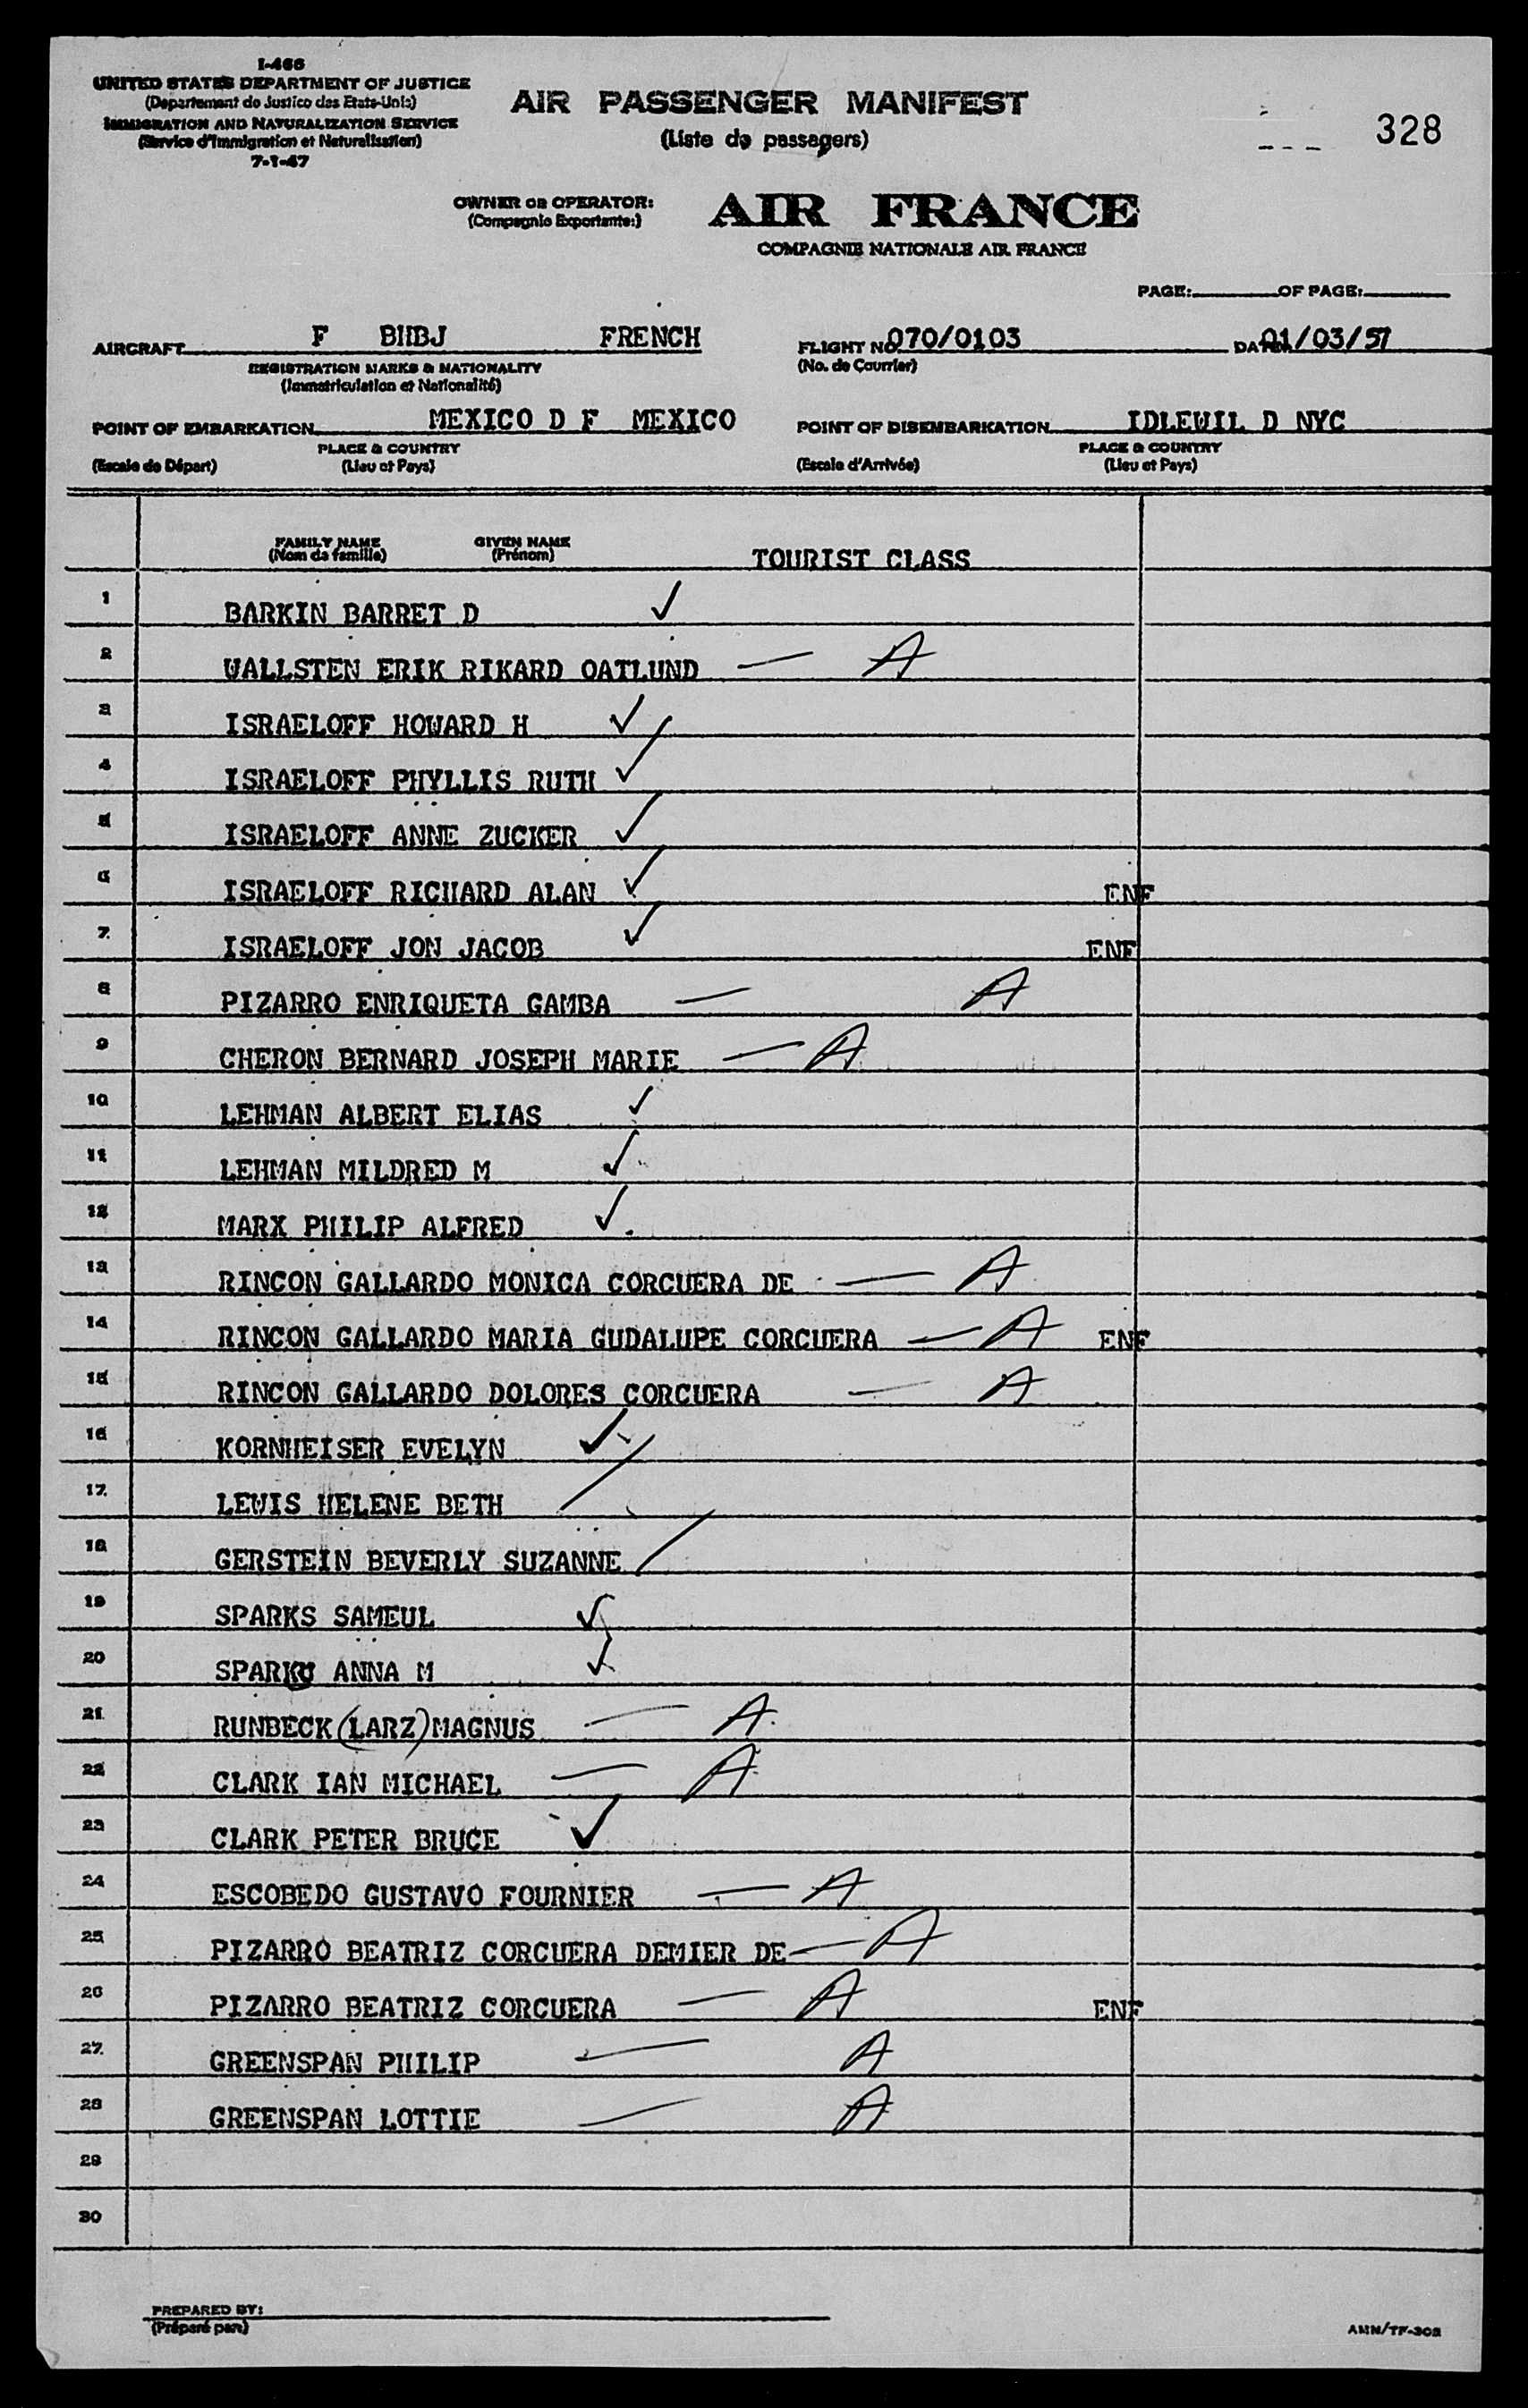 I-466
UNITED STATES DEPARTMENT OF JUSTICE
(Departement de Justice des Etats-Unis)
IMMIGRATION AND NATURALIZATION SERVICE
(Service d'Immigration et Naturalisation)
7-1-47
AIR PASSENGER MANIFEST
(Liste de passagers)
328
OWNER OR OPERATOR: AIR FRANCE
(Compagnie Exportante:)
COMPAGNIE NATIONALE AIR FRANCE
PAGE: OF PAGE:
AIRCRAFT F BHBJ FRENCH FLIGHT NO. 070/0103 DATE 01/03/57
REGISTRATION MARKS & NATIONALITY (No. de Courrier)
(Immatriculation et Nationalité)
POINT OF EMBARKATION MEXICO D F MEXICO POINT OF DISEMBARKATION IDLEWIL D NYC
PLACE & COUNTRY PLACE & COUNTRY
(Escale de Départ) (Lieu et Pays) (Escale d'Arrivée) (Lieu et Pays)
FAMILY NAME GIVEN NAME
(Nom de famille) (Prénom) TOURIST CLASS
1 BARKIN BARRET D ✓
2 WALLSTEN ERIK RIKARD OATLUND — A
3 ISRAELOFF HOWARD H ✓
4 ISRAELOFF PHYLLIS RUTH ✓
5 ISRAELOFF ANNE ZUCKER ✓
6 ISRAELOFF RICHARD ALAN ✓ ENF
7 ISRAELOFF JON JACOB ✓ ENF
8 PIZARRO ENRIQUETA GAMBA — A
9 CHERON BERNARD JOSEPH MARIE — A
10 LEHMAN ALBERT ELIAS ✓
11 LEHMAN MILDRED M ✓
12 MARX PHILIP ALFRED ✓
13 RINCON GALLARDO MONICA CORCUERA DE — A
14 RINCON GALLARDO MARIA GUDALUPE CORCUERA — A ENF
15 RINCON GALLARDO DOLORES CORCUERA — A
16 KORNHEISER EVELYN ✓
17 LEWIS HELENE BETH /
18 GERSTEIN BEVERLY SUZANNE /
19 SPARKS SAMEUL ✓
20 SPARKS ANNA M ✓
21 RUNBECK (LARZ) MAGNUS — A
22 CLARK IAN MICHAEL — A
23 CLARK PETER BRUCE ✓
24 ESCOBEDO GUSTAVO FOURNIER — A
25 PIZARRO BEATRIZ CORCUERA DEMIER DE — A
26 PIZARRO BEATRIZ CORCUERA — A ENF
27 GREENSPAN PHILIP — A
28 GREENSPAN LOTTIE — A
29
30
PREPARED BY:
(Préparé par)
AMN/TF-302